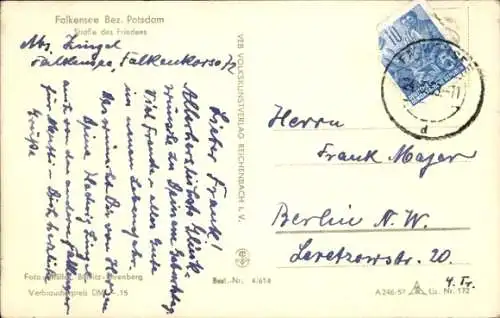 Falkensee Bez. Potsdam
Straße des Friedens
Abs. Zingel
Falkensee, Falkenkorso 72
Lieber Frank!
Allerherzlichste Glück-
wünsche zu Deinem Geburtstag
Viel Freude u. alles Gute
im neuen Lebensjahr,
das wünscht Dir von Herzen
Deine Hedwig Zingel
auch von den andern
Grüße
VEB VOLKSKUNSTVERLAG REICHENBACH i. V.
10
Herrn
Frank Majer
Berlin N.W.
Levetzowstr. 20.
4. Tr.
Verbraucherpreis DM -,15
Best.-Nr. 4/614
A 246-57 Liz. Nr. 172